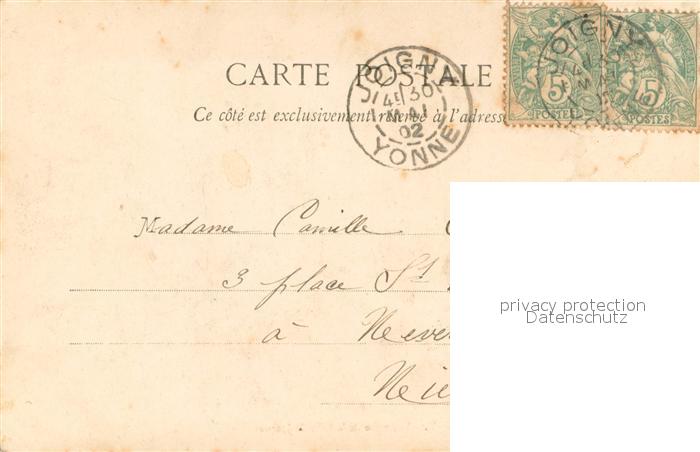 CARTE POSTALE
Ce côté est exclusivement réservé à l'adresse
JOIGNY
4E 30
MAI
02
YONNE
5
POSTES
JOIGNY
5
POSTES
Madame Camille
3 place St
à Never
Niè
privacy protection
Datenschutz